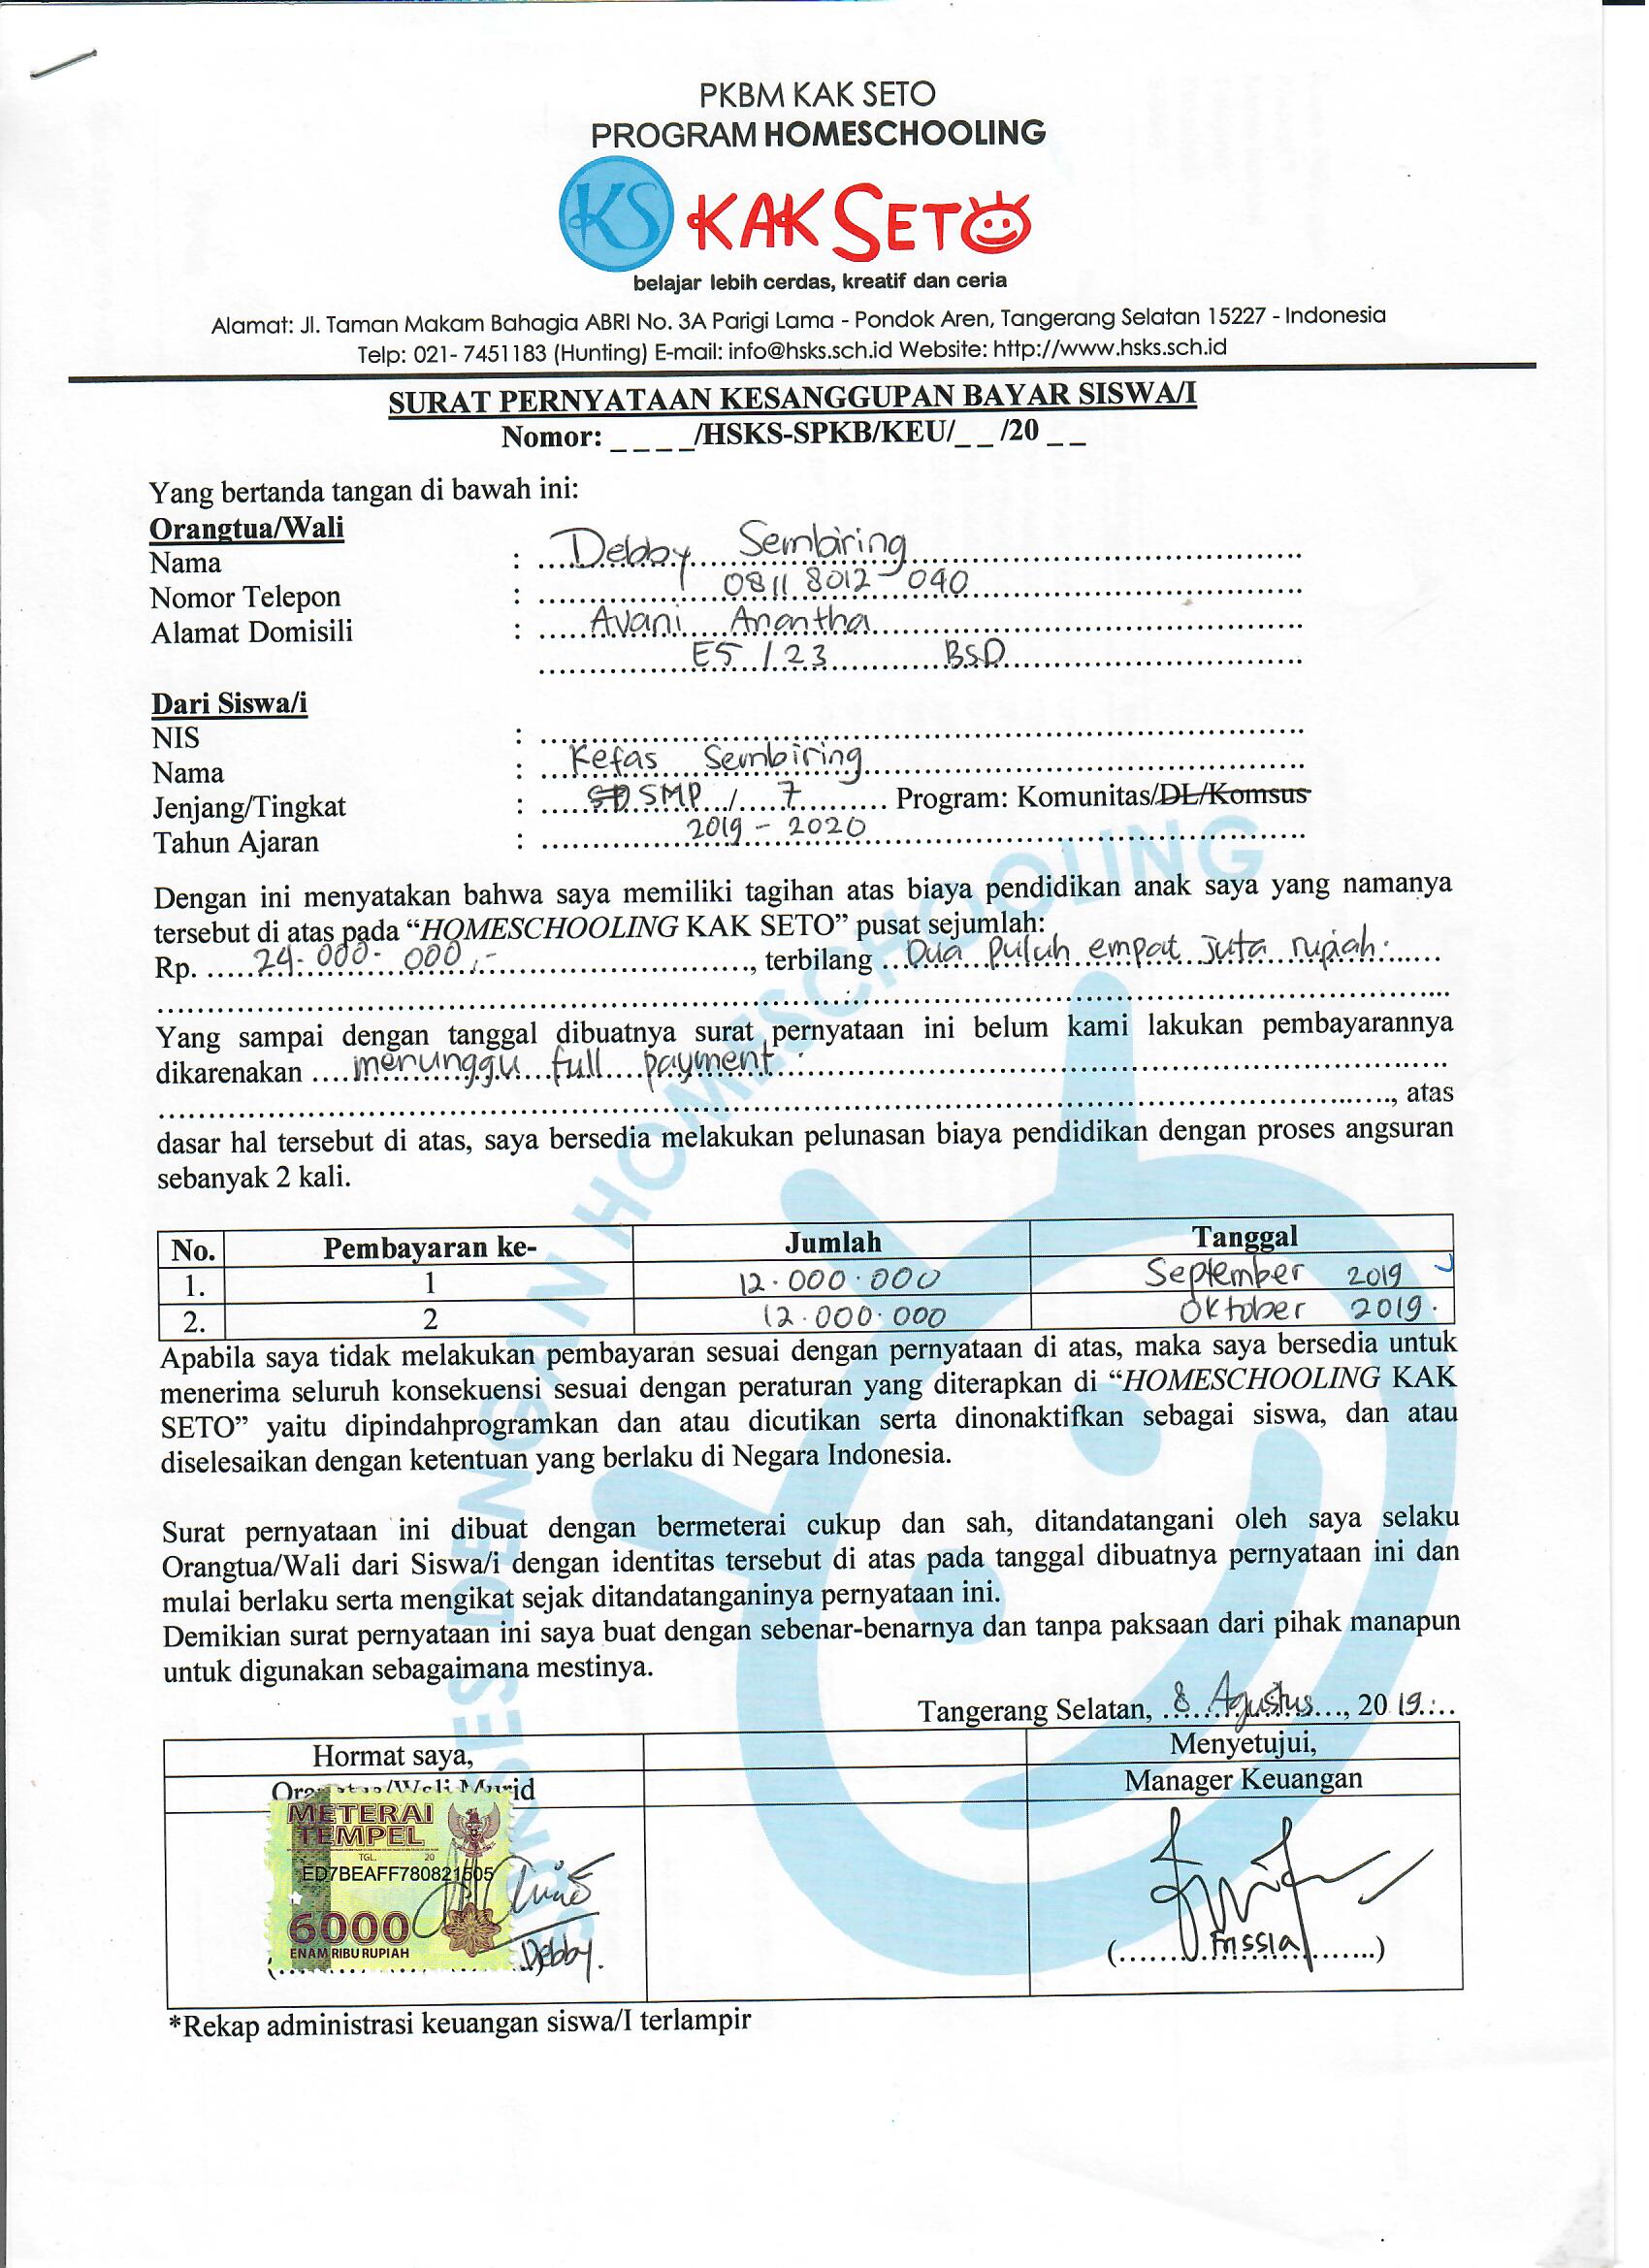 PKBM KAK SETO
PROGRAM HOMESCHOOLING
KS KAK SETO
belajar lebih cerdas, kreatif dan ceria
Alamat: Jl. Taman Makam Bahagia ABRI No. 3A Parigi Lama - Pondok Aren, Tangerang Selatan 15227 - Indonesia
Telp: 021- 7451183 (Hunting) E-mail: info@hsks.sch.id Website: http://www.hsks.sch.id
SURAT PERNYATAAN KESANGGUPAN BAYAR SISWA/I
Nomor: _ _ _ _/HSKS-SPKB/KEU/_ _ /20 _ _
Yang bertanda tangan di bawah ini:
Orangtua/Wali
Nama : Debby Sembiring
Nomor Telepon : 0811 8012-040
Alamat Domisili : Avani Anantha
E5 / 23 BSD
Dari Siswa/i
NIS :
Nama : Kefas Sembiring
Jenjang/Tingkat : SD SMP / 7 Program: Komunitas/DL/Komsus
Tahun Ajaran : 2019 - 2020
Dengan ini menyatakan bahwa saya memiliki tagihan atas biaya pendidikan anak saya yang namanya
tersebut di atas pada “HOMESCHOOLING KAK SETO” pusat sejumlah:
Rp. 24.000.000,- , terbilang Dua puluh empat juta rupiah.
Yang sampai dengan tanggal dibuatnya surat pernyataan ini belum kami lakukan pembayarannya
dikarenakan menunggu full payment.
, atas
dasar hal tersebut di atas, saya bersedia melakukan pelunasan biaya pendidikan dengan proses angsuran
sebanyak 2 kali.
No. Pembayaran ke- Jumlah Tanggal
1. 1 12.000.000 September 2019
2. 2 12.000.000 Oktober 2019.
Apabila saya tidak melakukan pembayaran sesuai dengan pernyataan di atas, maka saya bersedia untuk
menerima seluruh konsekuensi sesuai dengan peraturan yang diterapkan di “HOMESCHOOLING KAK
SETO” yaitu dipindahprogramkan dan atau dicutikan serta dinonaktifkan sebagai siswa, dan atau
diselesaikan dengan ketentuan yang berlaku di Negara Indonesia.
Surat pernyataan ini dibuat dengan bermeterai cukup dan sah, ditandatangani oleh saya selaku
Orangtua/Wali dari Siswa/i dengan identitas tersebut di atas pada tanggal dibuatnya pernyataan ini dan
mulai berlaku serta mengikat sejak ditandatanganinya pernyataan ini.
Demikian surat pernyataan ini saya buat dengan sebenar-benarnya dan tanpa paksaan dari pihak manapun
untuk digunakan sebagaimana mestinya.
Tangerang Selatan, 8 Agustus, 2019
Hormat saya, Menyetujui,
Orangtua/Wali Murid Manager Keuangan
METERAI
TEMPEL
TGL. 20
ED7BEAFF780821505
6000
ENAM RIBU RUPIAH
Debby.
*Rekap administrasi keuangan siswa/I terlampir
DENGAN HOMESCHOOLING